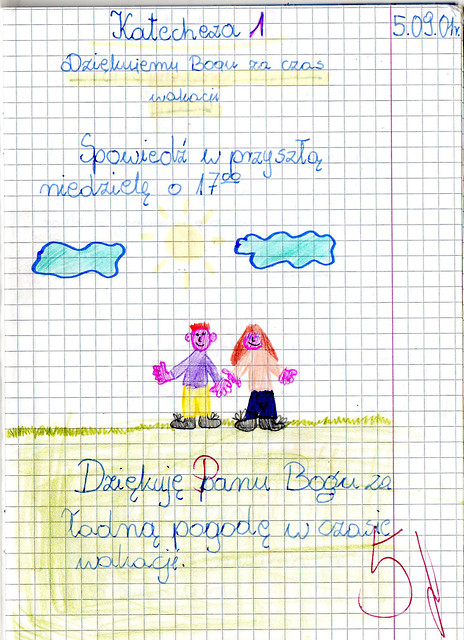 Katecheza 1 5.09.04r.
Dziękujemy Bogu za czas
wakacji
Spowiedź w przyszłą
niedzielę o 17⁰⁰
Dziękuję Panu Bogu za
ładną pogodę w czasie
wakacje.
5